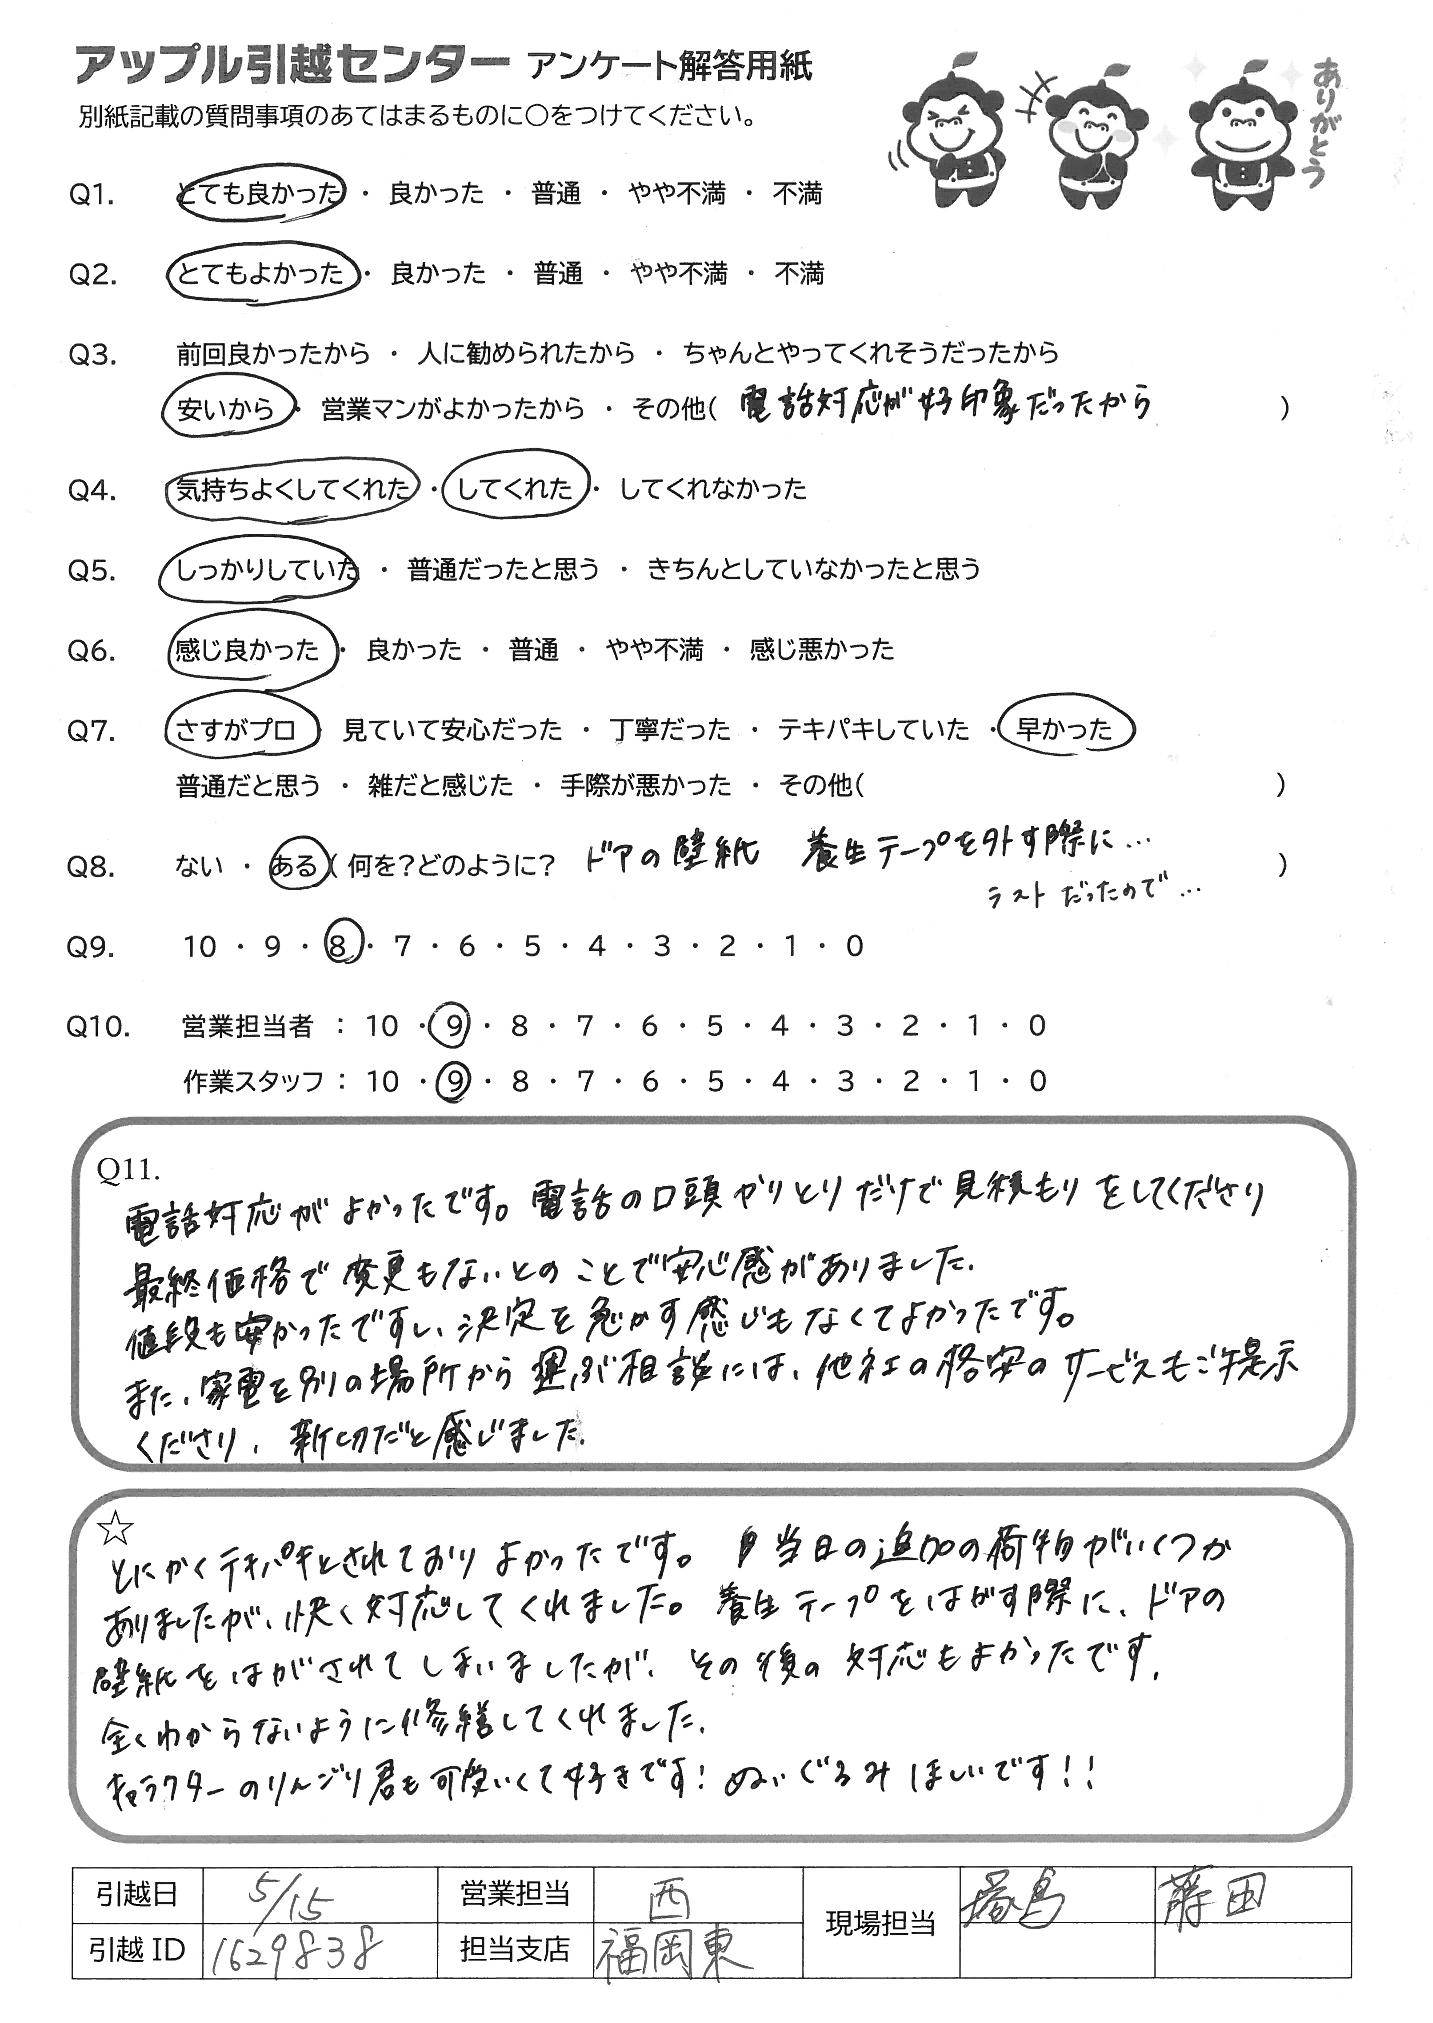 アップル引越センター アンケート解答用紙
ありがとう
別紙記載の質問事項のあてはまるものに〇をつけてください。
Q1. とても良かった ・ 良かった ・ 普通 ・ やや不満 ・ 不満
Q2. とてもよかった ・ 良かった ・ 普通 ・ やや不満 ・ 不満
Q3. 前回良かったから ・ 人に勧められたから ・ ちゃんとやってくれそうだったから
安いから ・ 営業マンがよかったから ・ その他( 電話対応が好印象だったから )
Q4. 気持ちよくしてくれた ・ してくれた ・ してくれなかった
Q5. しっかりしていた ・ 普通だったと思う ・ きちんとしていなかったと思う
Q6. 感じ良かった ・ 良かった ・ 普通 ・ やや不満 ・ 感じ悪かった
Q7. さすがプロ ・ 見ていて安心だった ・ 丁寧だった ・ テキパキしていた ・ 早かった
普通だと思う ・ 雑だと感じた ・ 手際が悪かった ・ その他( )
Q8. ない ・ ある ( 何を？どのように？ ドアの壁紙 養生テープを外す際に… )
ラストだったので…
Q9. 10 ・ 9 ・ 8 ・ 7 ・ 6 ・ 5 ・ 4 ・ 3 ・ 2 ・ 1 ・ 0
Q10. 営業担当者 ： 10 ・ 9 ・ 8 ・ 7 ・ 6 ・ 5 ・ 4 ・ 3 ・ 2 ・ 1 ・ 0
作業スタッフ ： 10 ・ 9 ・ 8 ・ 7 ・ 6 ・ 5 ・ 4 ・ 3 ・ 2 ・ 1 ・ 0
Q11.
電話対応がよかったです。電話の口頭やりとりだけで見積もりをしてくださり
最終価格で変更もないとのことで安心感がありました.
値段も安かったですし、決定を急かす感じもなくてよかったです。
また、家電を別の場所から運ぶ相談には、他社の格安のサービスもご提示
くださり、親切だと感じました.
☆
とにかくテキパキとされておりよかったです。 当日の追加の荷物がいくつか
ありましたが、快く対応してくれました。養生テープをはがす際に、ドアの
壁紙をはがされてしまいましたが、その後の対応もよかったです.
全くわからないように修繕してくれました.
キャラクターのりんごり君も可愛いくて好きです! ぬいぐるみほしいです!!
引越日 5/15 営業担当 西 現場担当
引越 ID 1629838 担当支店 福岡東